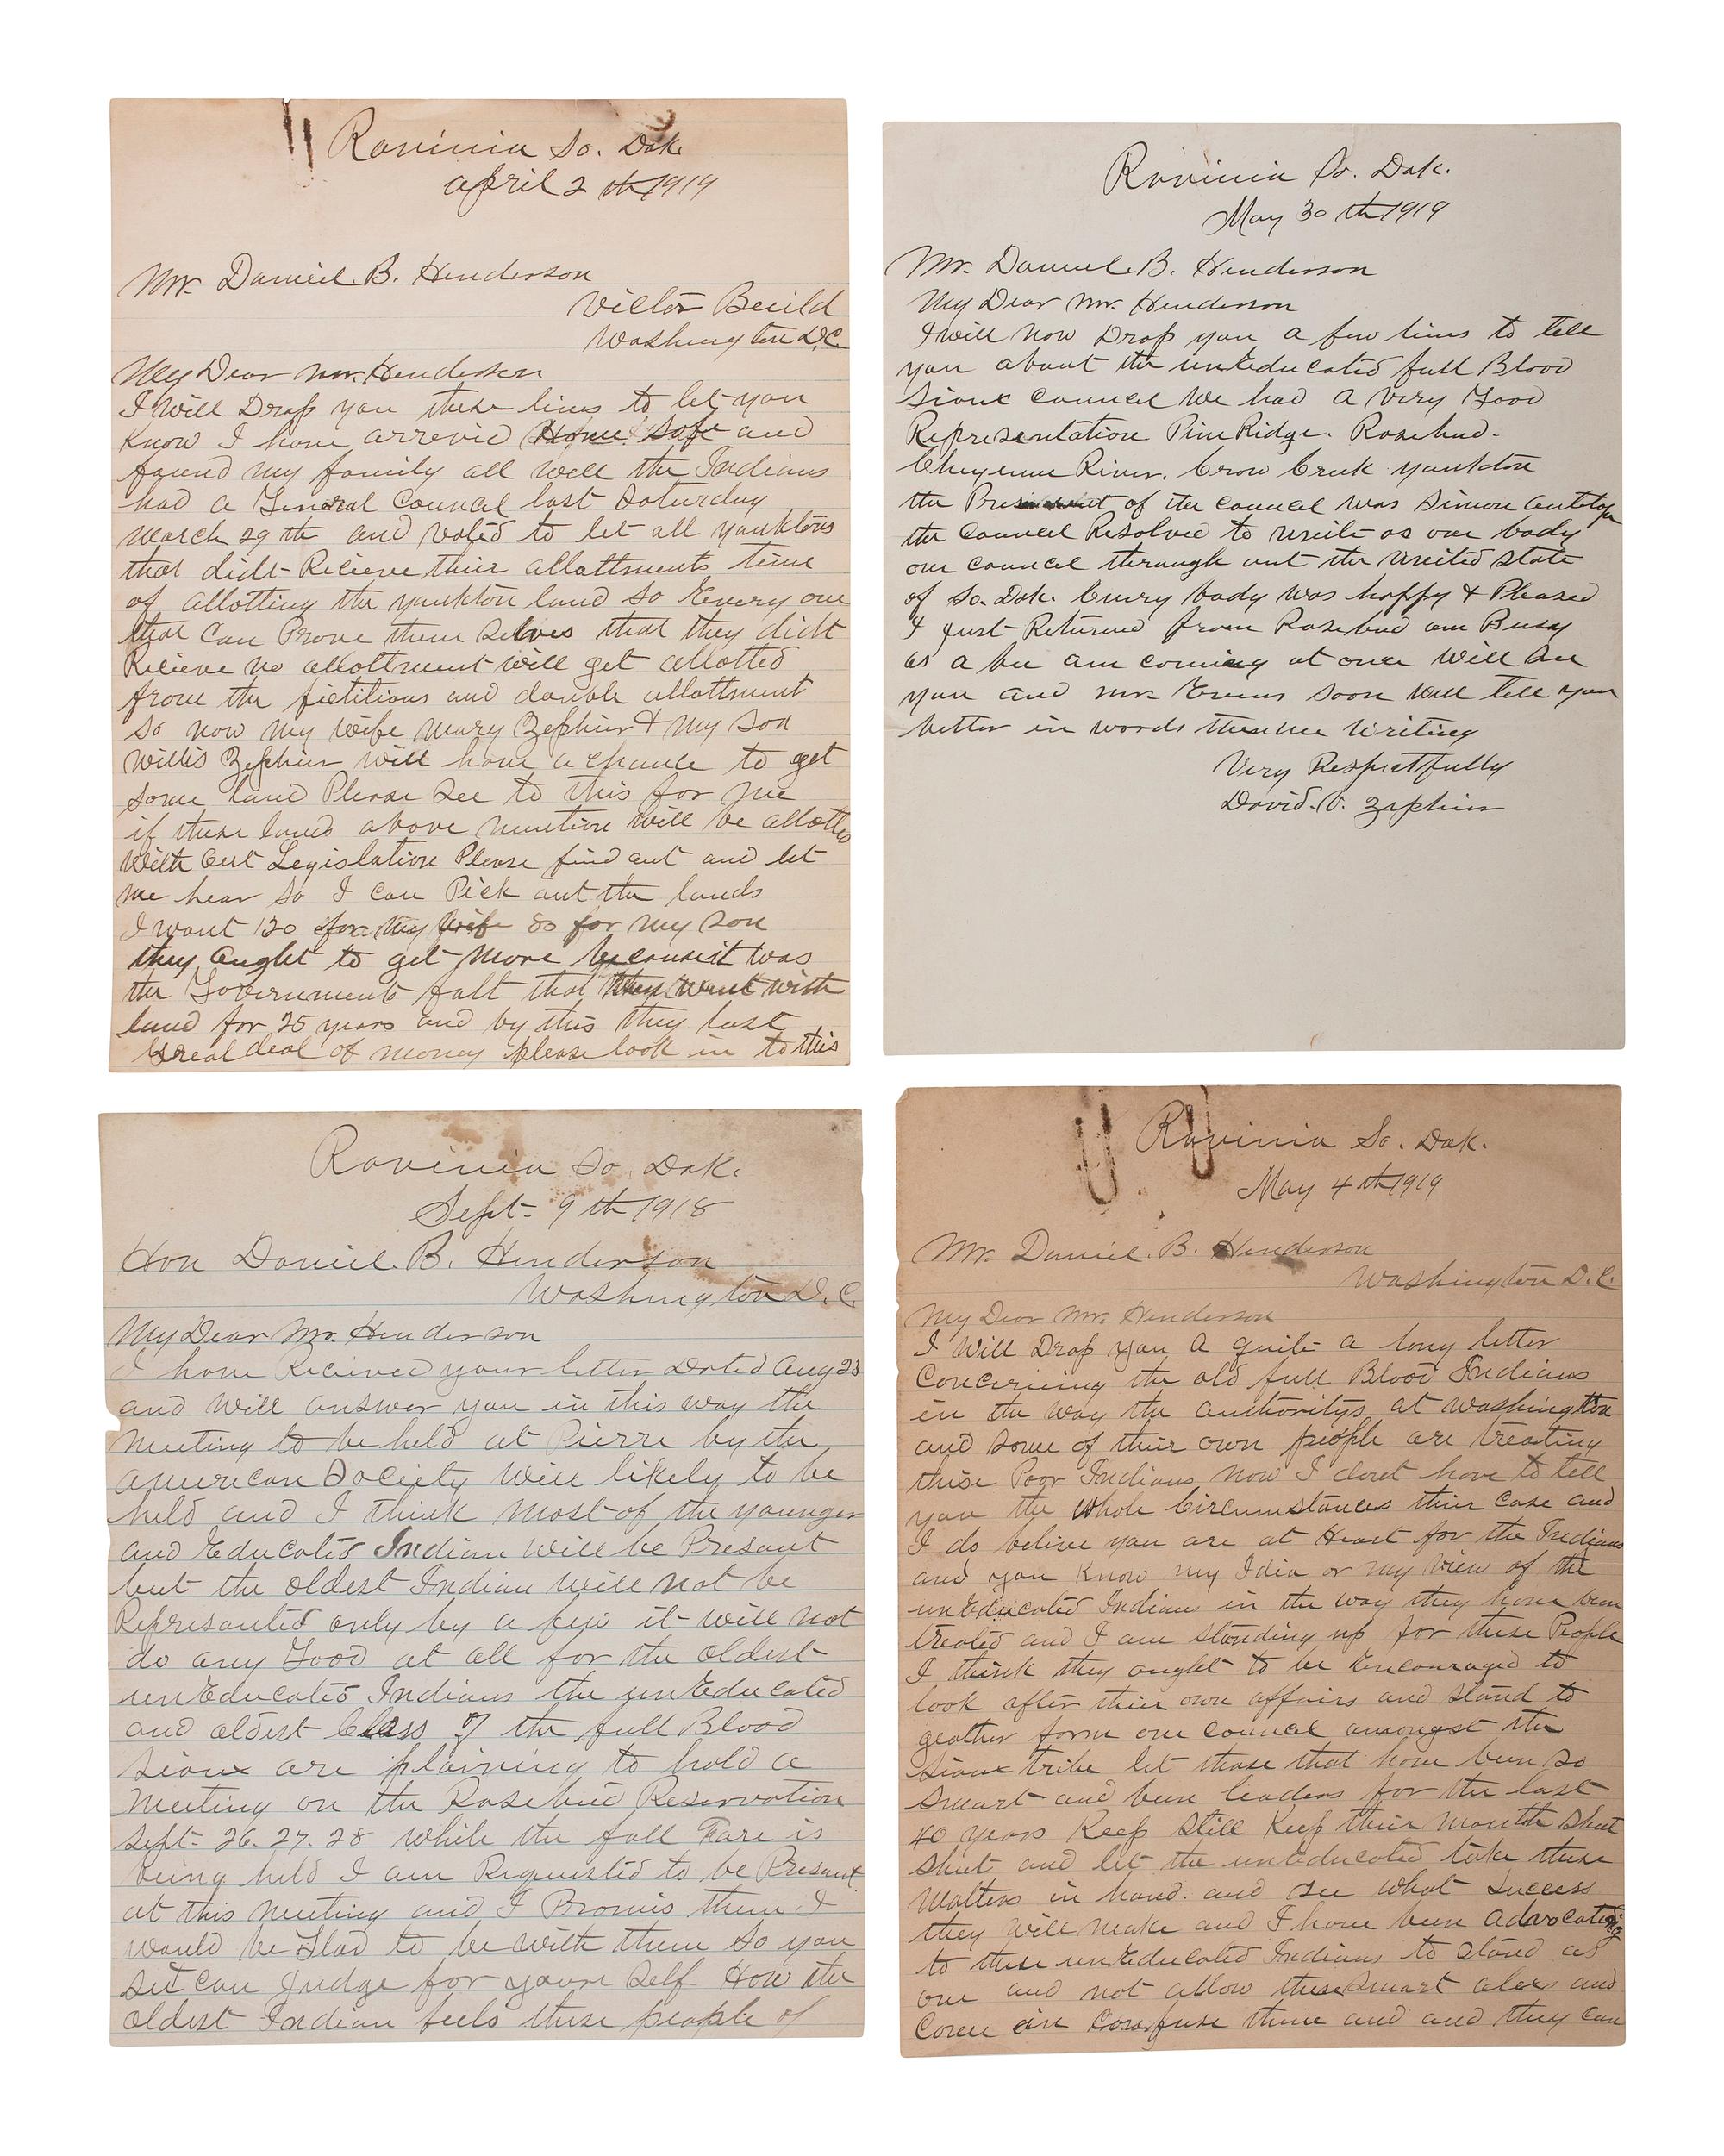 Ravinia So. Dak.
April 2 th 1919
Mr. Daniel. B. Henderson
Victor Build
Washington D.C.
My Dear Mr. Henderson
I Will Drop you these lines to let you
know I have arrevid Home safe and
found my family all well the Indians
had a General Council last Saturday
March 29 th and voted to let all yanktons
that didt Recieve thier allottments time
of allotting the yankton land so Every one
that can Prove them selves that they didt
Recieve no allottment will get allotted
from the fictitious and double allottment
so now my wife Mary Zephier & my son
Willis Zephier will have a chance to get
some land Please see to this for me
if these lands above mention will be allotted
with out Legislation Please find out and let
me hear so I can Pick out the lands
I want 120 for my wife 80 for my son
they ought to get more because it was
the Governments falt that they went with
land for 25 years and by this they lost
Great deal of money please look in to this
Ravinia So. Dak.
May 30 th 1919
Mr. Daniel. B. Henderson
My Dear Mr. Henderson
I will now Drop you a few lines to tell
you about the unEducated full Blood
Sioux council We had a very Good
Representation Pine Ridge. Rosebud.
Cheyenne River. Crow Creek yankton
the President of the council was Simon Antelope
the council Resolved to unite as one body
one council through out the united state
of So. Dak. Every body was happy & Pleased
I Just Returned from Rosebud am Busy
as a bee am coming at once Will see
you and Mr. Evens soon will tell you
better in words then in Writing
Very Respectfully
David. V. Zephier
Ravinia So. Dak.
Sept. 9 th 1918
Hon Daniel. B. Henderson
Washington D.C.
My Dear Mr. Henderson
I have Recieved your letter Dated Aug 23
and will answer you in this way the
meeting to be held at Pierre by the
American Society Will likely to be
held and I think most of the younger
and Educated Indian will be Presant
but the oldest Indian will not be
Represanted only by a few it will not
do any Good at all for the oldest
unEducated Indians the unEducated
and oldest Class of the full Blood
Sioux are planing to hold a
meeting on the Rosebud Reservation
Sept. 26. 27. 28 while the fall Fare is
being held I am Requested to be Presant
at this meeting and I Promis them I
would be Glad to be with them So you
see can Judge for youre self How the
oldest Indian feels these people of
Ravinia So. Dak.
May 4 th 1919
Mr. Daniel. B. Henderson
Washington D.C.
My Dear Mr. Henderson
I Will Drop you a quite a long letter
concerning the old full Blood Indians
in the way the authoritys at Washington
and some of thier own people are treating
these Poor Indians now I dont have to tell
you the whole Circumstances thier case and
I do belive you are at Heart for the Indians
and you know my Idia or my view of the
unEducated Indians in the way they have been
treated and I am standing up for these People
I think they ought to be Encouraged to
look after thier own affairs and stand to
geather form one council amongst the
Sioux tribe let those that have been so
smart and been leaders for the last
40 years Keep still Keep thier mouth shut
shut and let the unEducated take these
matters in hand. and see what success
they will make and I have been advocating
to these unEducated Indians to stand as
one and not allow these smart alecs and
come in confuse them and and they can